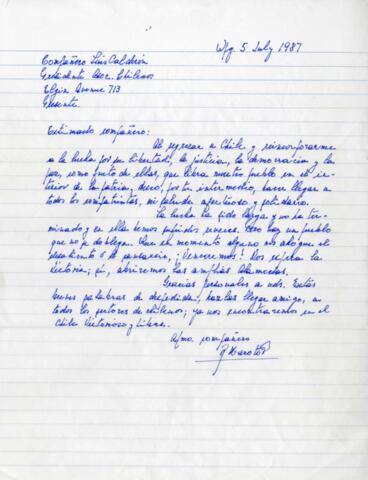 Wpg. 5 July 1987
Compañero Luis Calderón
Presidente Asoc. Chilenos
Elgin Avenue 713
Presente.
Estimado compañero:
Al regresar a Chile y reincorporarme
a la lucha por su libertad, la justicia, la democracia y la
paz, como parte de ellas, que libra nuestro pueblo en el in-
terior de la patria, deseo, por tu intermedio, hacer llegar a
todos los compatriotas, mi saludo afectuoso y solidario.
La lucha ha sido larga y no ha ter-
minado y en ella hemos sufrido reveses. Pero hay un pueblo
que no se doblega. Que en momento alguno nos ahogue el
desaliento o el cansancio, ¡Venceremos! Nos espera la
victoria; sí, abriremos las amplias Alamedas.
Gracias personales a uds. Estas
breves palabras de despedida, hazlas llegar amigo, a
todos los sectores de chilenos; ya nos encontraremos en el
Chile Victorioso y Libre.
Afmo. compañero